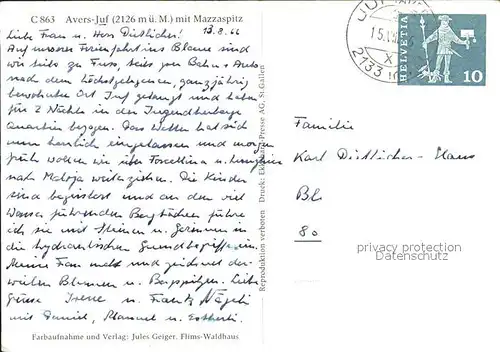 C 863 Avers-Juf (2126 m ü. M.) mit Mazzaspitz
13.8.66
Liebe Frau u. Herr Dietlicher!
Auf unserer Ferienfahrt ins Blaue sind
wir teils zu Fuss, teils per Bahn u. Auto
nach dem höchstgelegenen, ganzjährig
bewohnten Ort Juf gelangt und haben
für 2 Nächte in der Jugendherberge
Quartier bezogen. Das Wetter hat sich
nun herrlich eingelassen und morgen
früh wollen wir über Forcellina u. Lunghin
nach Maloja weiterziehen. Die Kinder
sind begeistert und an den viel
Wasser führenden Bergbächen führe
ich sie mit Steinen u. Gerinnen in
die hydraulischen Grundbegriffe ein.
Meine Frau malt und zeichnet der-
weilen Blumen u. Bergspitzen. Liebe
Grüsse Irene u. Nägeli
mit Daniel, u.
Farbaufnahme und Verlag: Jules Geiger, Flims-Waldhaus
Reproduktion verboten Druck: -Presse AG, St. Gallen
15.
2133
HELVETIA
10
Familie
Karl Dietlicher
BL
80
privacy protection